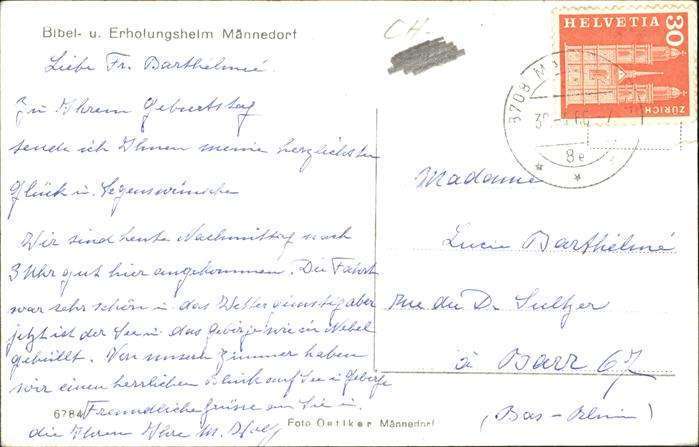 Bibel- u. Erholungsheim Männedorf
CH-
Liebe Fr. Barthélmé.
Zu Ihrem Geburtstag
sende ich Ihnen meine herzlichsten
Glück u. Segenswünsche
Wir sind heute Nachmittag nach
3 Uhr gut hier angekommen. Die Fahrt
war sehr schön u das Wetter günstig aber
jetzt ist der See u das Gebirge wie in Nebel
gehüllt. Von unserem Zimmer haben
wir einen herrlichen Blick auf See u Gebirge
Freundliche Grüsse an Sie u.
die Ihren Ihre M.
6784
Foto Oetiker Männedorf
HELVETIA 30
ZÜRICH
8708
8e
Madame
Lucie Barthélmé
Rue du Dr Sultzer
à Barr 67
(Bas-Rhin)